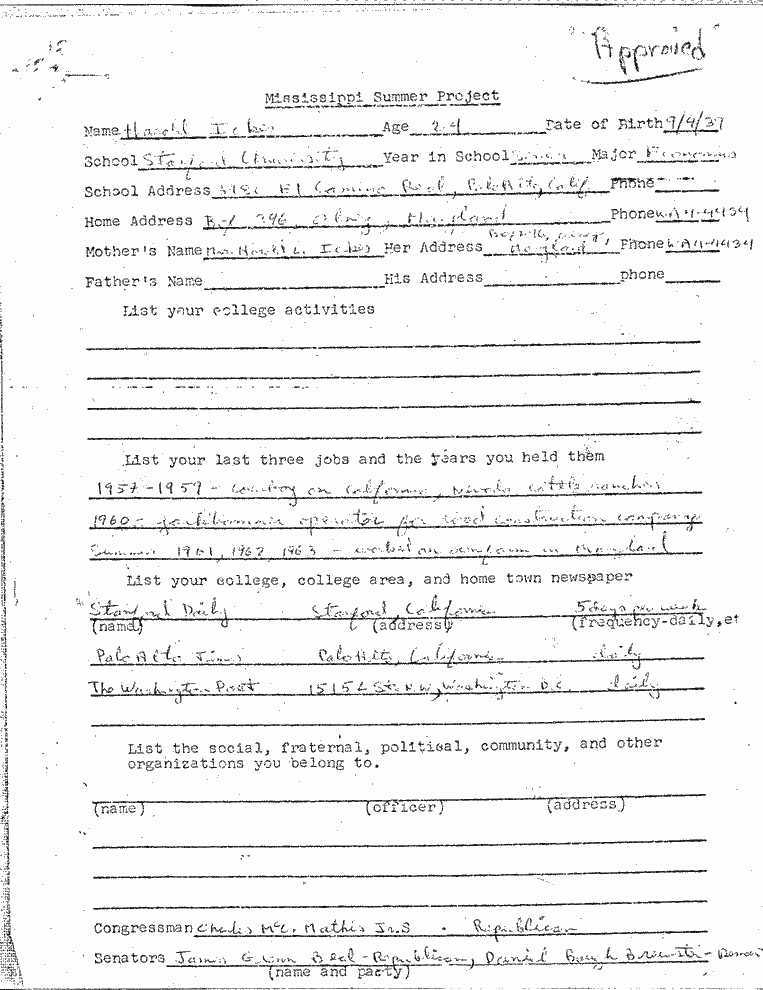 "Approved"
Mississippi Summer Project
Name Harold Ickes Age 24 Date of Birth 9/4/39
School Stanford University Year in School Senior Major Economics
School Address El Camino Real, Palo Alto, Calif. Phone
Home Address Box 396, Olney, Maryland Phone WA4-4434
Mother's Name Mrs. Harold L. Ickes Her Address Olney, Maryland Phone WA4-4434
Father's Name His Address phone
List your college activities
List your last three jobs and the years you held them
1957-1959 - cowboy on California, Nevada cattle ranches
1960 - jackhammer operator for road construction company
Summer 1961, 1962, 1963 - worked on farm in Maryland
List your college, college area, and home town newspaper
Stanford Daily Stanford, California 5 days per week
(name) (address) (frequency-daily, et
Palo Alto Times Palo Alto, California daily
The Washington Post 1515 L St. N.W., Washington D.C. daily
List the social, fraternal, political, community, and other
organizations you belong to.
(name) (officer) (address)
Congressman Charles McC. Mathis Jr. Republican
Senators James Glenn Beal - Republican, Daniel Baugh Brewster -
(name and party)